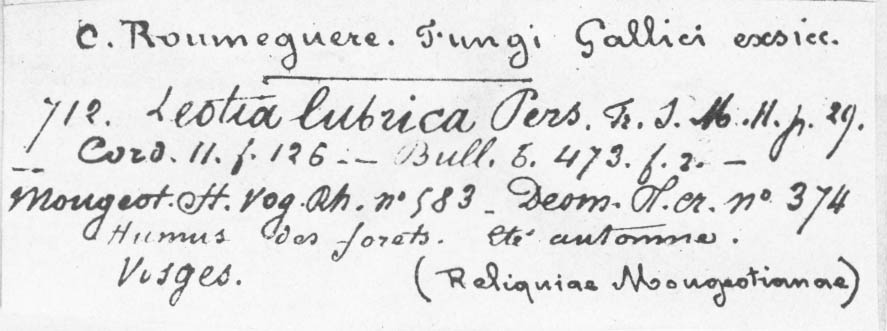 C. Roumeguere. Fungi Gallici exsicc.
712. Leotia lubrica Pers. Fr. S. M. II. p. 29.
Cord. II. f. 126 -- Bull. t. 473. f. 2. -
Mougeot. St. Vog. Rh. nº 583 - Desm. Pl. cr. nº 374
Humus des forets. Eté automne.
Vosges. (Reliquiae Mougeotianae)